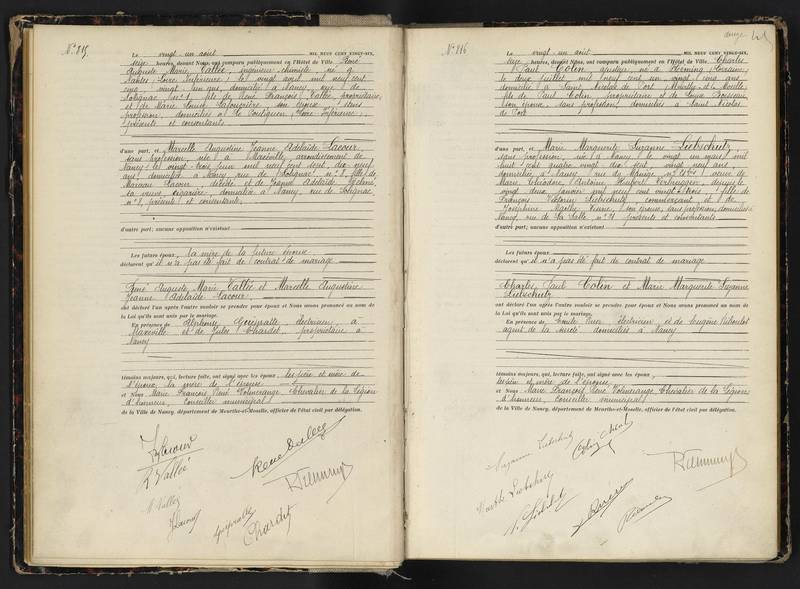 N° 815
Le vingt un août MIL NEUF CENT VINGT-SIX,
seize heures, devant Nous, ont comparu publiquement en l'Hôtel de Ville René
Auguste Marie Vallée, ingénieur chimiste né à
Nantes (Loire Inférieure) le vingt avril mil neuf cent
cinq vingt un ans, domicilié à Nancy rue de
Solignac fils de René François Vallée, propriétaire
et de Marie Louise son épouse, sans
profession, domiciliés à Le Pouliguen (Loire Inférieure),
présents et consentants
d'une part, et Marcelle Augustine Jeanne Adelaïde Lacour,
sans profession, née à Maxéville, arrondissement de
Nancy le vingt trois juin mil neuf cent sept, dix neuf
ans, domiciliée à Nancy rue de Solignac n° 8, fille de
Lacour décédé et de Jeanne Adelaïde
sa veuve, domiciliée à Nancy, rue de Solignac
n° 8, présente et consentante
d'autre part; aucune opposition n'existant
Les futurs époux, la mère de la future épouse
déclarent qu'il n'a pas été fait de contrat de mariage
René Auguste Marie Vallée et Marcelle Augustine
Jeanne Adelaïde Lacour,
ont déclaré l'un après l'autre vouloir se prendre pour époux et Nous avons prononcé au nom de
la Loi qu'ils sont unis par le mariage.
En présence de Alphonse électricien, à
Maxéville et de Jules Chardot, propriétaire à
Nancy
témoins majeurs, qui, lecture faite, ont signé avec les époux, les père et mère de
l'époux, la mère de l'épouse
et Nous Marie François René Volmerange Chevalier de la Légion
d'honneur, conseiller municipal
de la Ville de Nancy, département de Meurthe-et-Moselle, officier de l'état civil par délégation.
J Lacour
R Vallée
M Vallée
J Lacour
Chardot
N° 816
Le vingt un août MIL NEUF CENT VINGT-SIX,
seize heures, devant Nous, ont comparu publiquement en l'Hôtel de Ville Charles
Paul Colin, ajusteur, né à Herming (Lorraine)
le deux juillet mil neuf cent un vingt cinq ans,
domicilié à Saint Nicolas de Port (Meurthe et Moselle)
fils de Paul Colin, propriétaire et de Louise
son épouse sans profession, domiciliés à Saint Nicolas
de Port
d'une part, et Marie Marguerite Suzanne Liebschutz,
sans profession, née à Nancy le vingt un mars mil
huit cent quatre vingt dix sept, vingt neuf ans,
domiciliée à Nancy rue du Manège veuve de
Marie Théodore Antoine Hubert depuis le
vingt deux janvier mil neuf cent vingt trois, fille de
François Victorin Liebschutz commerçant et de
Joséphine Marthe son épouse, sans profession, domiciliés
Nancy, rue de la Salle, n° 21 présents et consentants
d'autre part; aucune opposition n'existant
Les futurs époux
déclarent qu'il n'a pas été fait de contrat de mariage
Charles Paul Colin et Marie Marguerite Suzanne
Liebschutz
ont déclaré l'un après l'autre vouloir se prendre pour époux et Nous avons prononcé au nom de
la Loi qu'ils sont unis par le mariage.
En présence de Emile électricien, et de Eugène
agent de la sûreté domiciliés à Nancy
témoins majeurs, qui, lecture faite, ont signé avec les époux,
les père et mère de l'épouse
et Nous Marie François René Volmerange, Chevalier de la Légion
d'honneur, conseiller municipal
de la Ville de Nancy, département de Meurthe-et-Moselle, officier de l'état civil par délégation.
Suzanne Liebschutz
Marthe Liebschutz